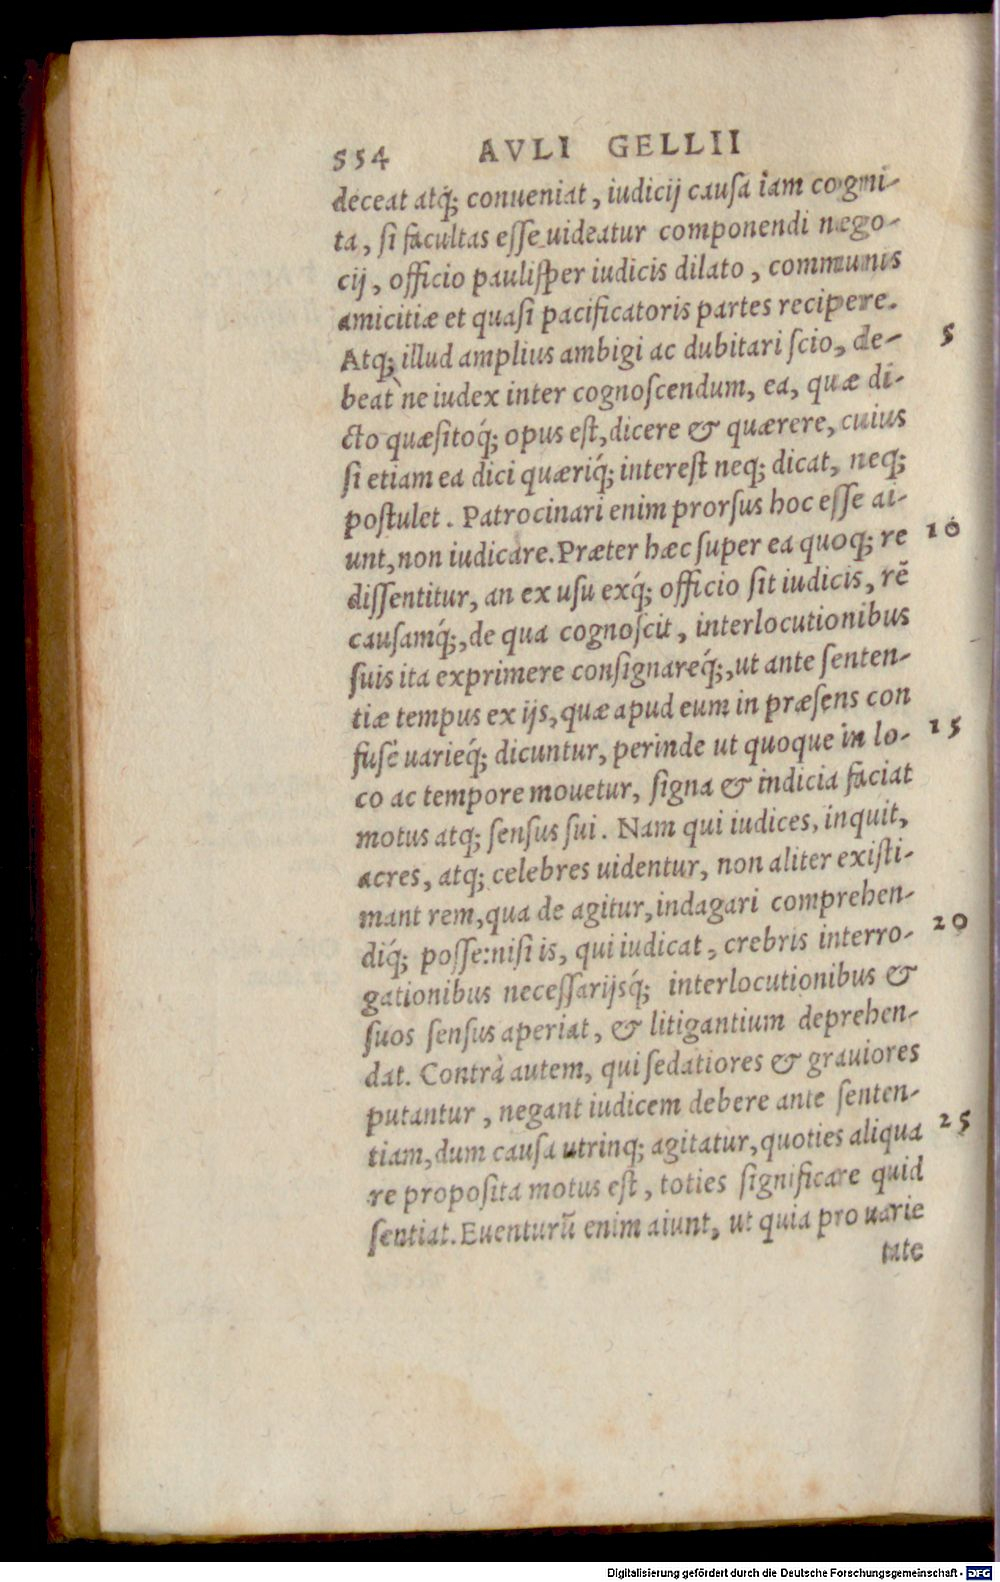 554 AVLI GELLII
deceat atq́; conueniat, iudicij causa iam cogni-
ta, si facultas esse uideatur componendi nego-
cij, officio paulisper iudicis dilato, communis
amicitiæ et quasi pacificatoris partes recipere.
Atq; illud amplius ambigi ac dubitari scio, de- 5
beat ne iudex inter cognoscendum, ea, quæ di-
cto quæsitoq́; opus est, dicere & quærere, cuius
si etiam ea dici quæriq́; interest neq; dicat, neq;
postulet. Patrocinari enim prorsus hoc esse ai-
unt, non iudicare. Præter hæc super ea quoq; re 10
dissentitur, an ex usu exq́; officio sit iudicis, rẽ
causamq́;, de qua cognoscit, interlocutionibus
suis ita exprimere consignareq́;, ut ante senten-
tiæ tempus ex ijs, quæ apud eum in præsens con
fusè uarieq́; dicuntur, perinde ut quoque in lo- 15
co ac tempore mouetur, signa & indicia faciat
motus atq; sensus sui. Nam qui iudices, inquit,
acres, atq; celebres uidentur, non aliter existi-
mant rem, qua de agitur, indagari comprehen-
diq́; posse: nisi is, qui iudicat, crebris interro- 20
gationibus necessarijsq́; interlocutionibus &
suos sensus aperiat, & litigantium deprehen-
dat. Contrà autem, qui sedatiores & grauiores
putantur, negant iudicem debere ante senten-
tiam, dum causa utrinq; agitatur, quoties aliqua 25
re proposita motus est, toties significare quid
sentiat. Euenturũ enim aiunt, ut quia pro uarie
tate
Digitalisierung gefördert durch die Deutsche Forschungsgemeinschaft - DFG